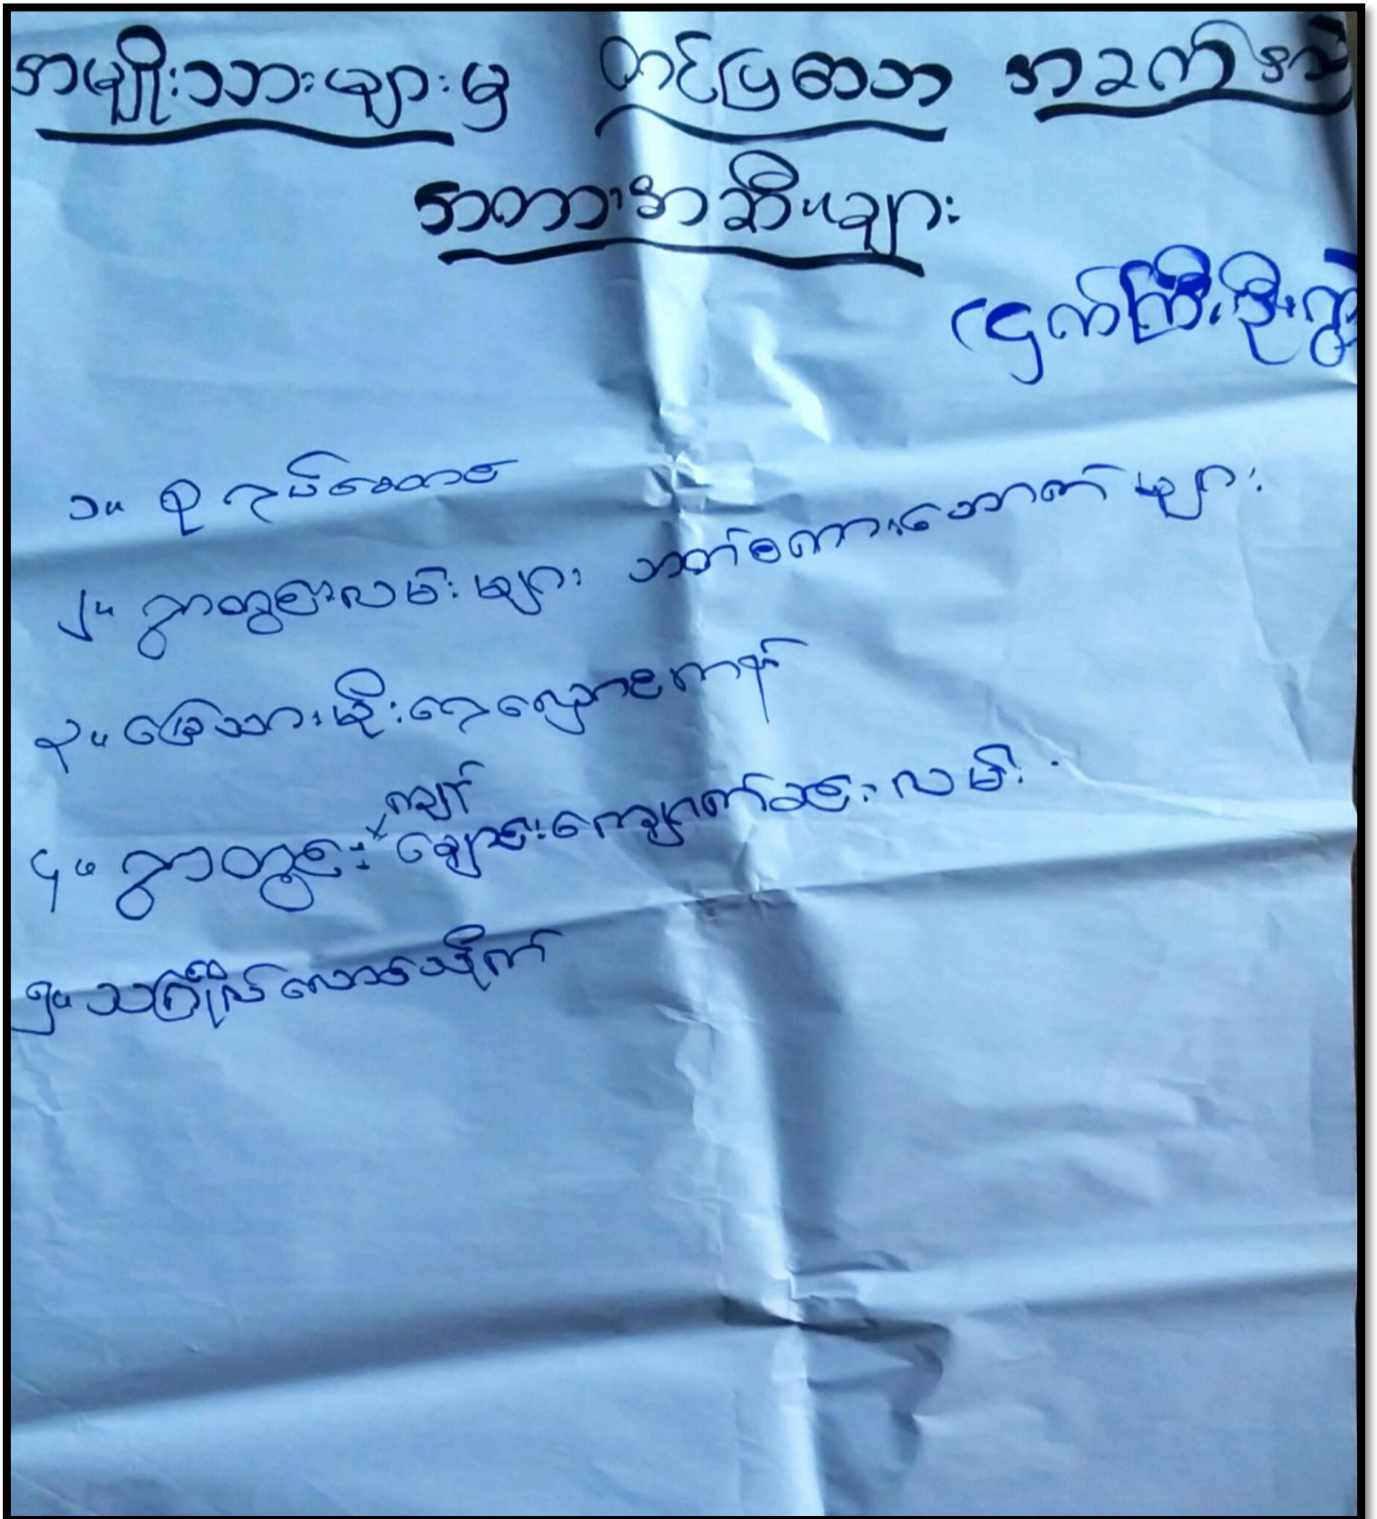 အမျိုးသားများမှ တင်ပြသော အခက်အခဲ
အတားအဆီးများ
(ငှက်ကြီးဦးရွာ
၁။ စုရပ်ဆောင်
၂။ ရွာတွင်းလမ်းများ ဘတ်စကားဘောက်များ
၃။ မြေသားမိုးရေလှောင်ကန်
၄။ ရွာတွင်း ကျော် ချောင်းကျောက်ခင်းလမ်း
၅။ သင်္ဂြိုလ်လောင်တိုက်